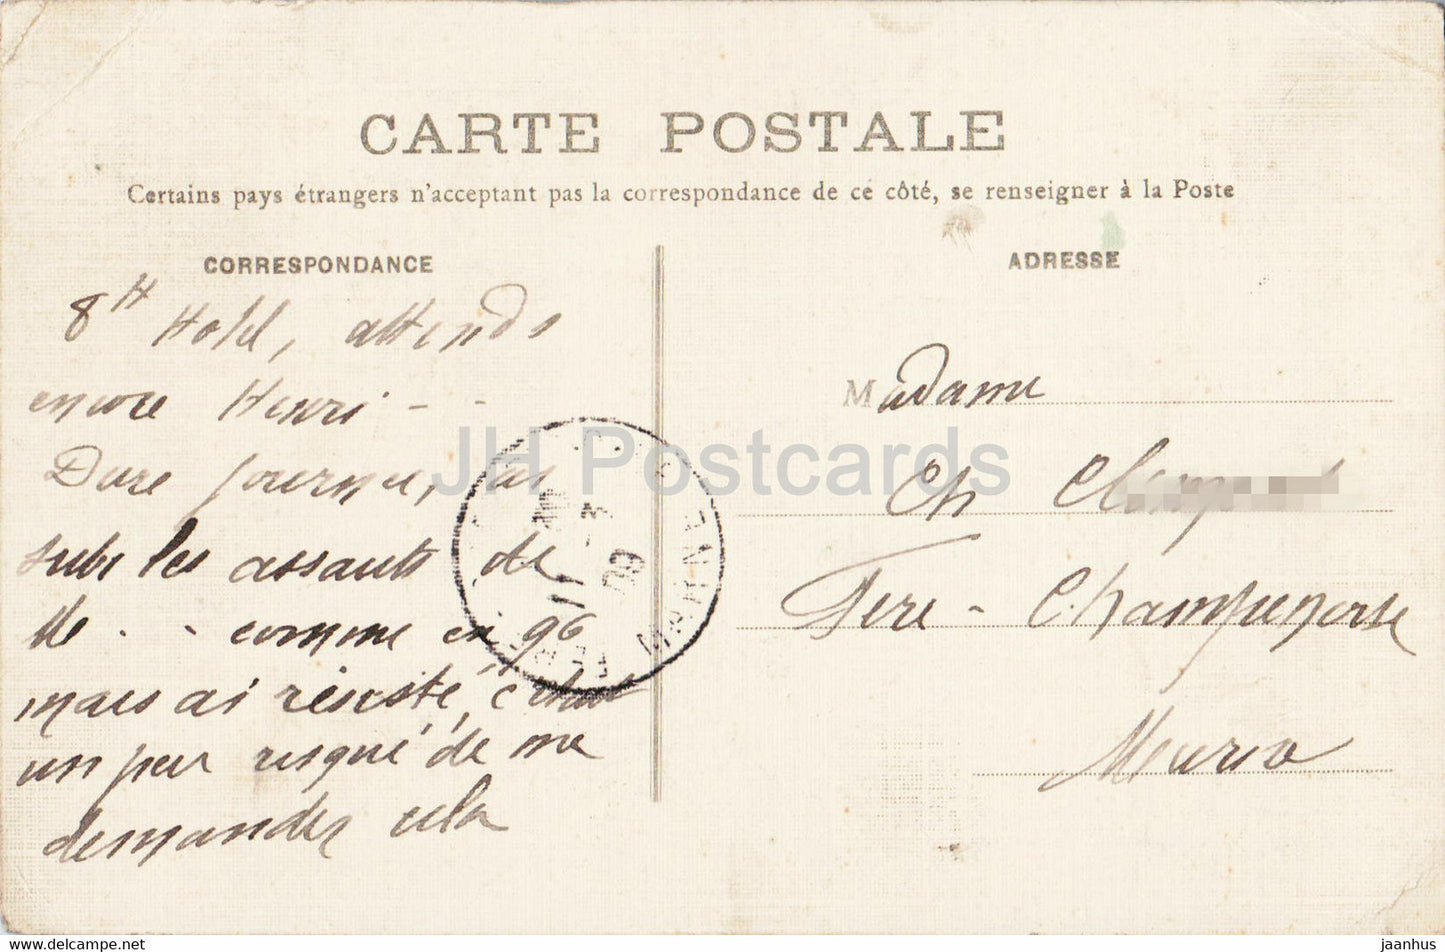 CARTE POSTALE
Certains pays étrangers n'acceptent pas la correspondance de ce côté, se renseigner à la Poste
CORRESPONDANCE
8H Hotel, attends
encore Henri - -
Dure journée, ai
subi les assauts de
de - - comme en 96
mais ai résisté, c'était
un peu risqué de me
demander cela
ADRESSE
Madame
Ch
Fère-Champenoise
Marne
JH Postcards
FERE
MARNE
11 - 3
09
https://www.delcampe.net
jaanhus